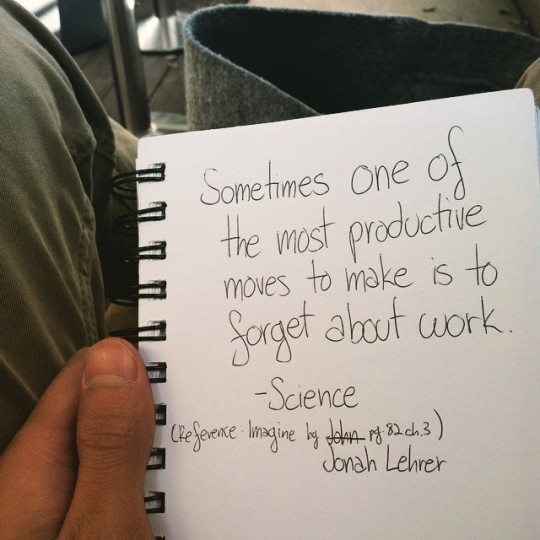 Sometimes one of
the most productive
moves to make is to
forget about work.
-Science
(Reference: Imagine by John pg. 82 ch. 3)
Jonah Lehrer